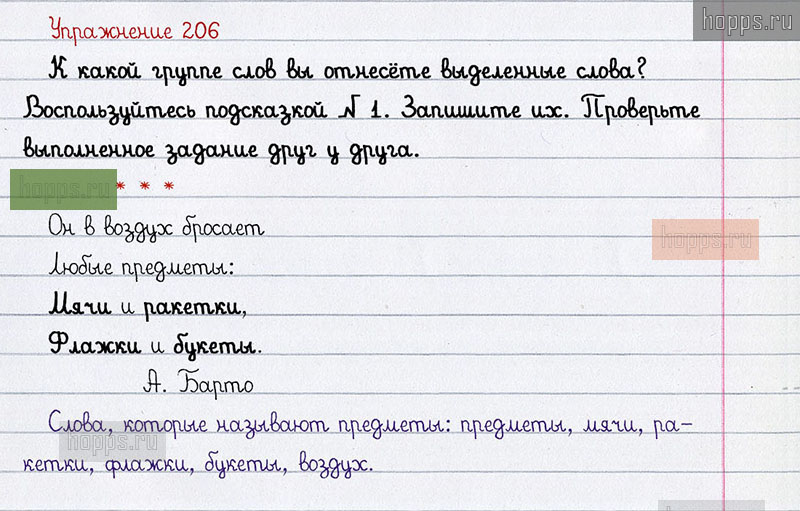 hopps.ru
Упражнение 206
К какой группе слов вы отнесёте выделенные слова?
Воспользуйтесь подсказкой № 1. Запишите их. Проверьте
выполненное задание друг у друга.
hopps.ru * * *
Он в воздух бросает
hopps.ru
Любые предметы:
Мячи и ракетки,
Флажки и букеты.
А. Барто
Слова, которые называют предметы: предметы, мячи, ра-
hopps.ru
кетки, флажки, букеты, воздух.
hopps.ru